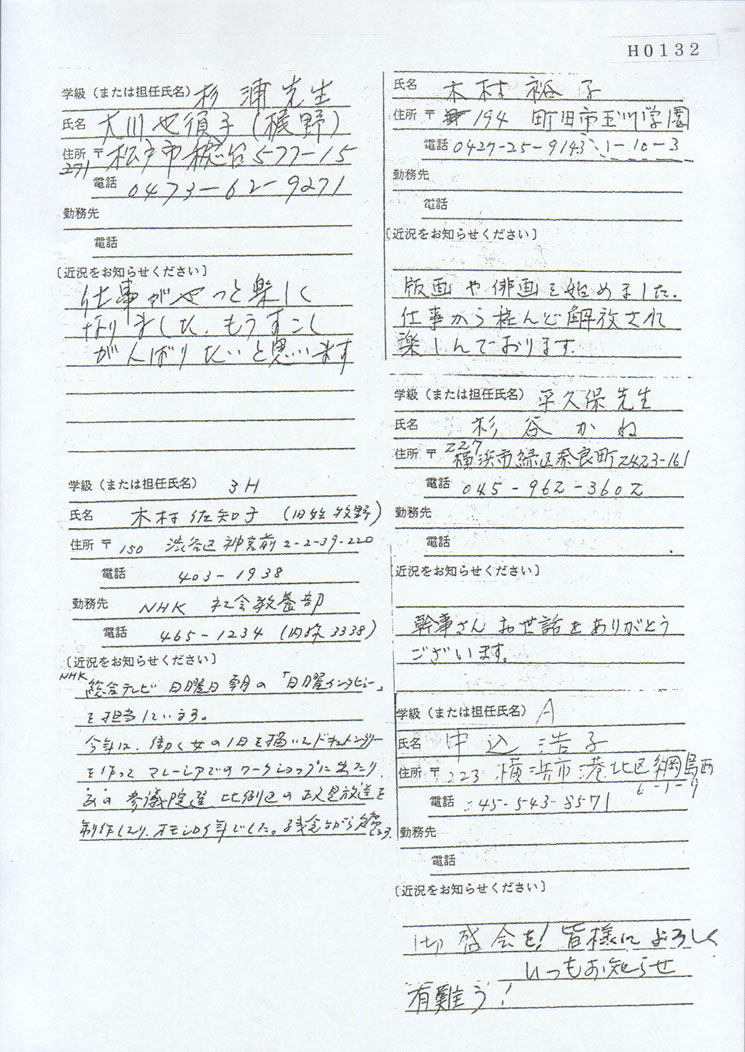 H0132
学級（または担任氏名）杉浦先生
氏名 大川也須子（梶野）
住所 〒271 松戸市梶台577-15
電話 0473-62-9271
勤務先
電話
〔近況をお知らせください〕
仕事がやっと楽しく
なりました．もうすこし
がんばりたいと思います
学級（または担任氏名） 3H
氏名 木村佐知子（旧姓牧野）
住所 〒150 渋谷区神宮前2-2-39-220
電話 403-1938
勤務先 NHK 社会教養部
電話 465-1234（内線3338）
〔近況をお知らせください〕
NHK 総合テレビ 日曜日 朝の「日曜インタビュー」
を担当しています。
今年は、働く女の1日を描いたドキュメンタリー
を作って マレーシアでのワークショップに出たり
参議院選 比例区の政見放送を
制作したり、
氏名 木村裕子
住所 〒194 町田市玉川学園
電話 0427-25-9143 1-10-3
勤務先
電話
〔近況をお知らせください〕
版画や俳画を始めました．
仕事から殆んど解放され
楽しんでおります．
学級（または担任氏名）平久保先生
氏名 杉谷かね
住所 〒227 横浜市緑区奈良町2423-161
電話 045-962-3602
勤務先
電話
〔近況をお知らせください〕
幹事さんお世話をありがとう
ございます。
学級（または担任氏名）A
氏名 中込浩子
住所 〒223 横浜市港北区綱島西
6-1-9
電話 45-543-8571
勤務先
電話
〔近況をお知らせください〕
御盛会を！皆様によろしく
いつもお知らせ
有難う！